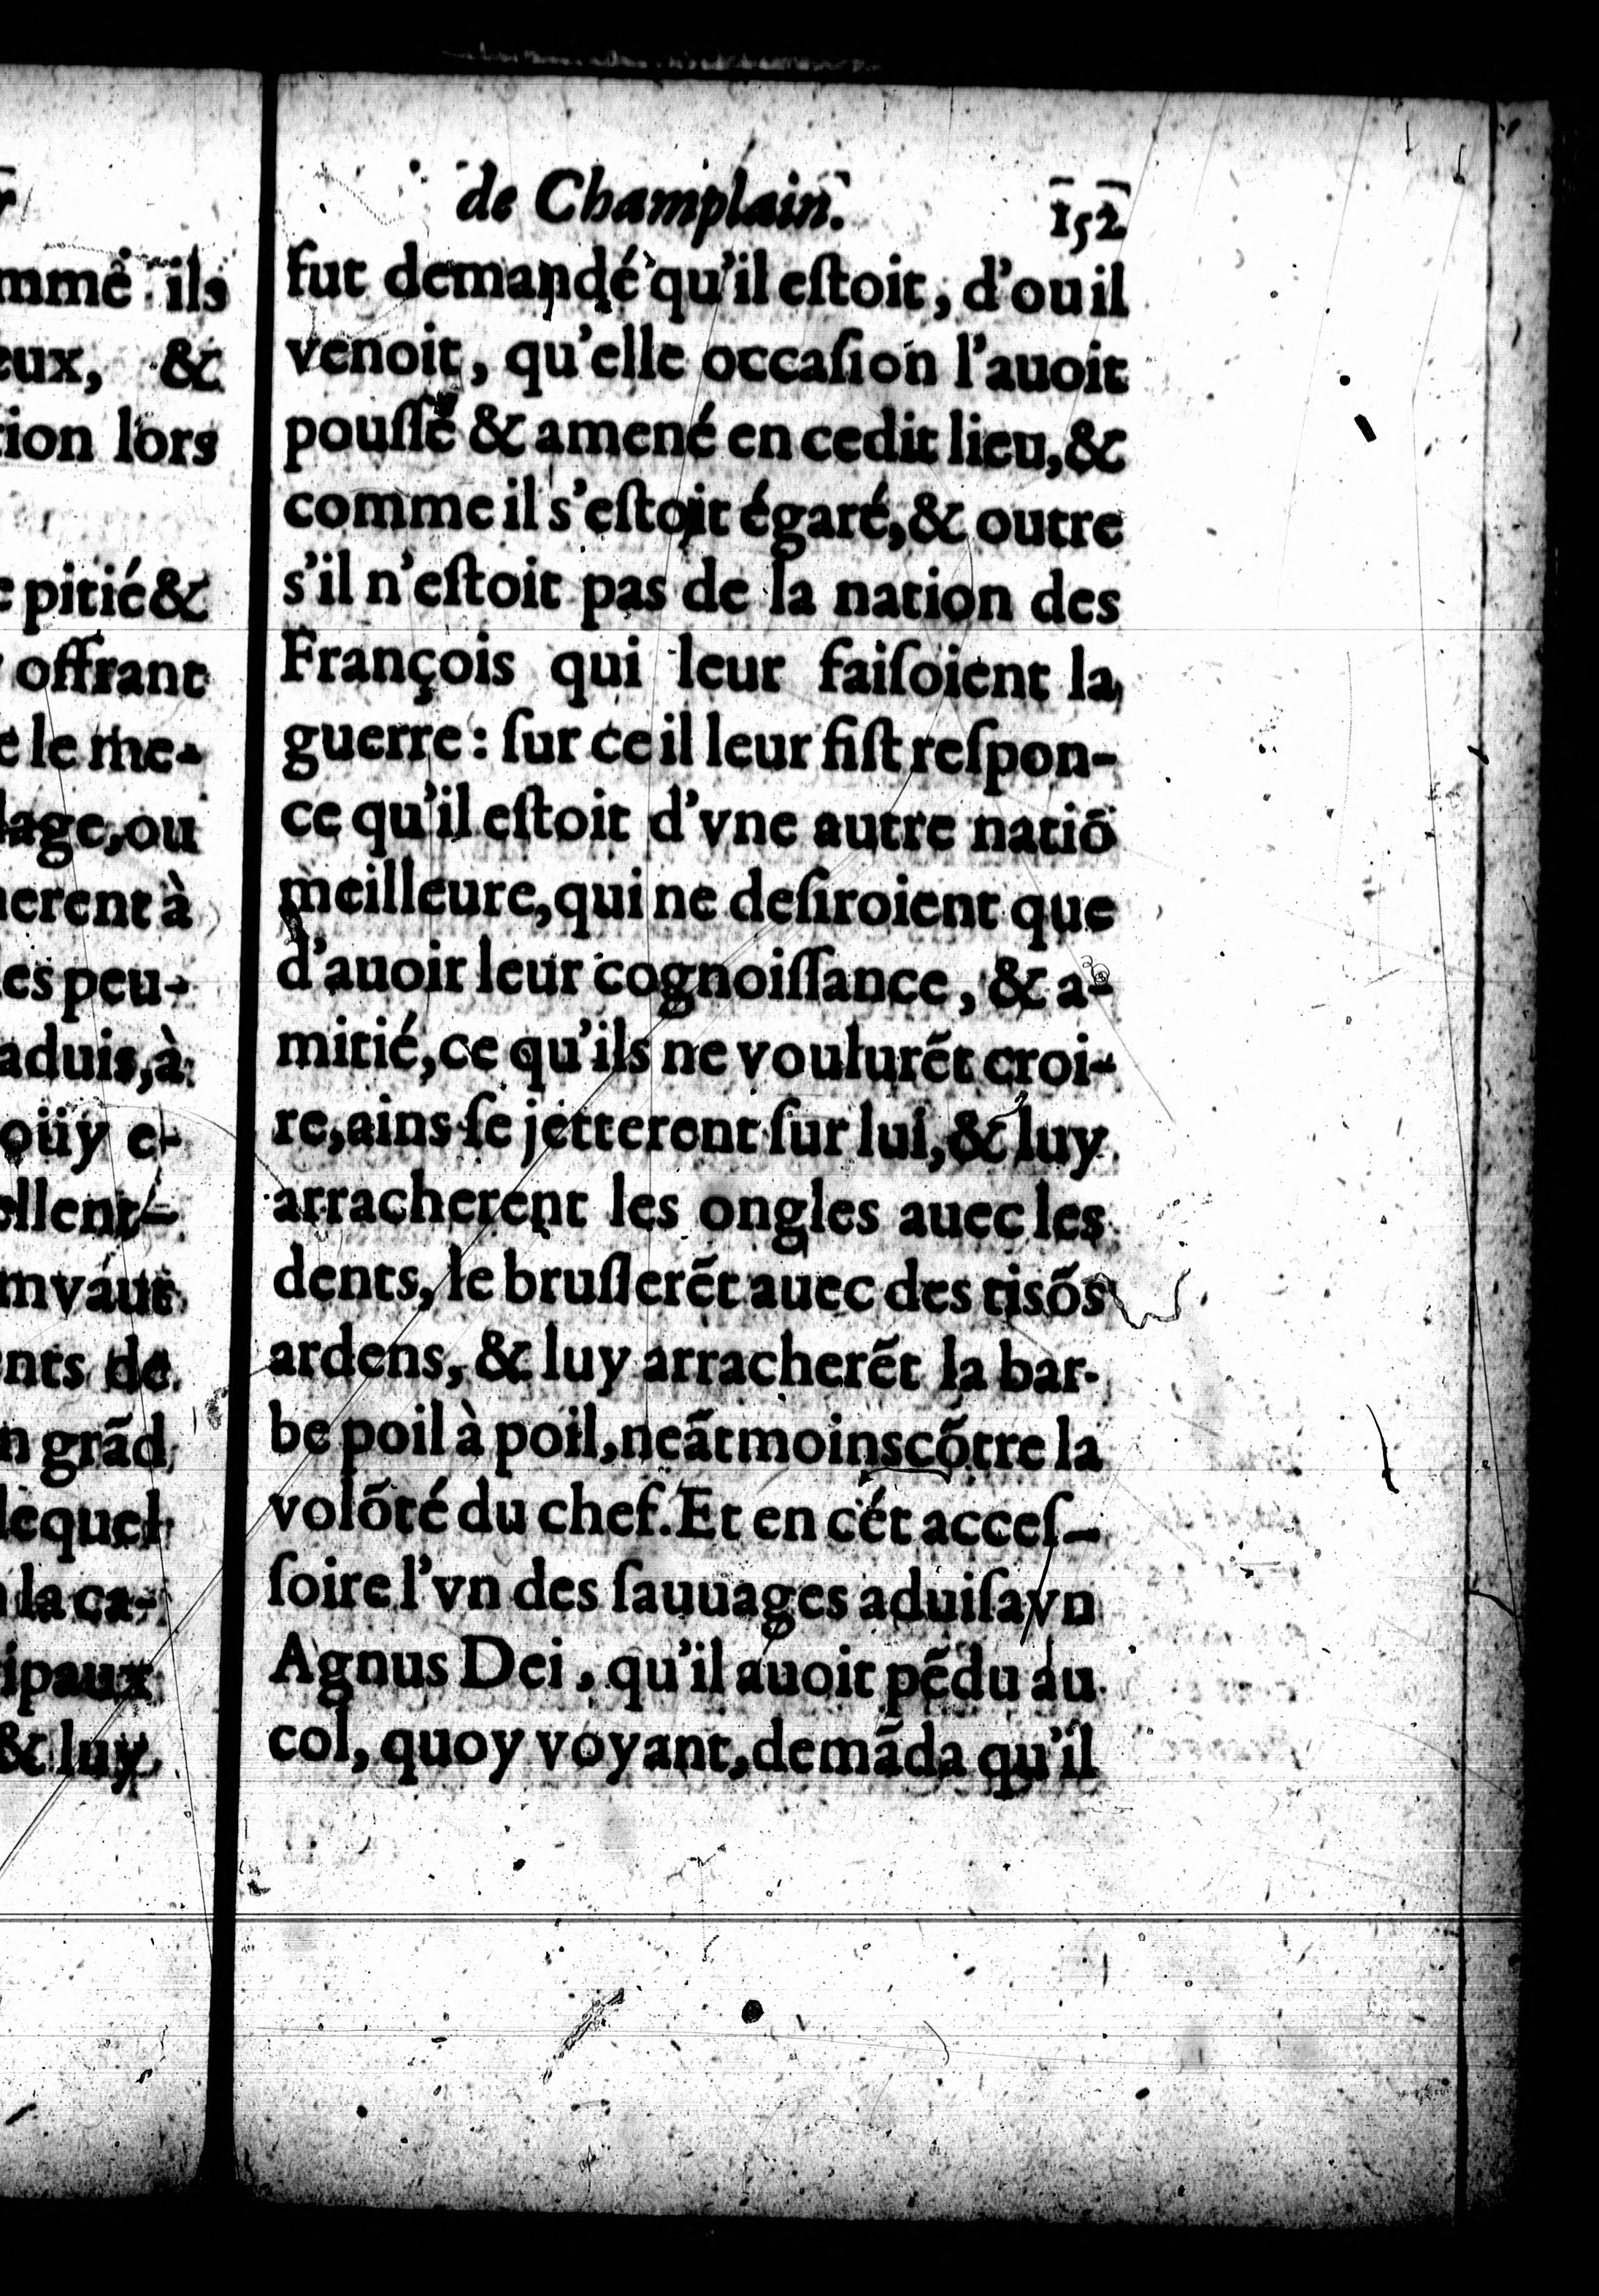 mme ils
eux, &
tion lors
e pitié &
offrant
e le me-
lage, ou
herent à
les peu-
aduis, à
oüy e-
ellent-
mvaut
ents de
n grãd
lequel
la ca-
ipaux
& luy
de Champlain. 152
fut demandé qu'il eſtoit, d'ou il
venoit, qu'elle occaſion l'auoit
pouſſé & amené en cedit lieu, &
comme il s'eſtoit égaré, & outre
s'il n'eſtoit pas de la nation des
François qui leur faiſoient la
guerre : ſur ce il leur fiſt reſpon-
ce qu'il eſtoit d'vne autre natiõ
meilleure, qui ne deſiroient que
d'auoir leur cognoiſſance, & a-
mitié, ce qu'ils ne voulurẽt croi-
re, ains ſe jetterent ſur lui, & luy
arracherent les ongles auec les
dents, le bruſlerẽt auec des tisõs
ardens, & luy arracherẽt la bar-
be poil à poil, neãtmoins cõtre la
volõté du chef. Et en cét acceſ-
ſoire l'vn des ſauuages aduiſa vn
Agnus Dei, qu'il auoit pẽdu au
col, quoy voyant, demãda qu'il